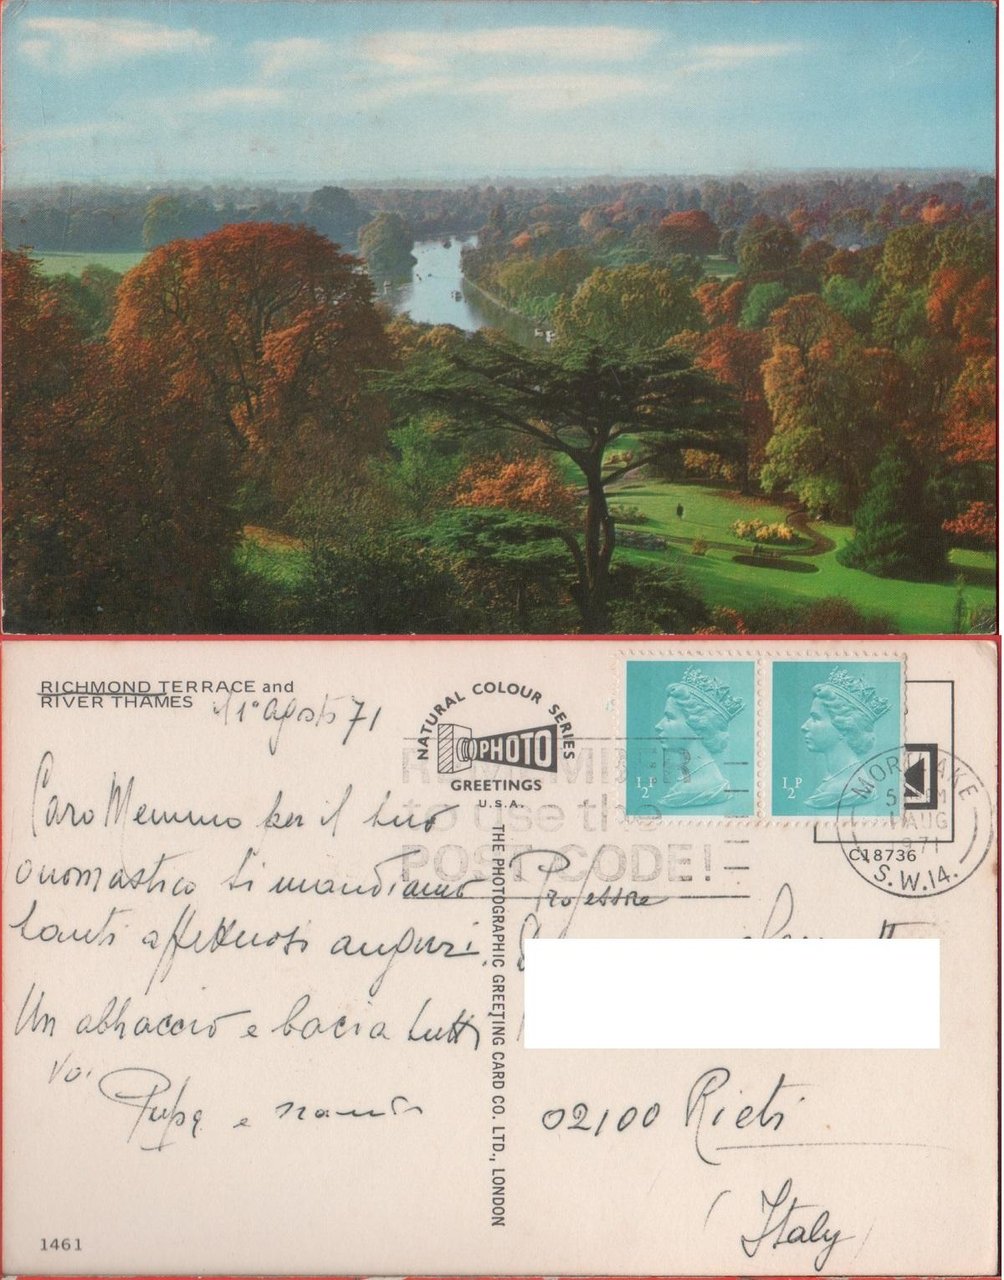 RICHMOND TERRACE and
RIVER THAMES
1° Agosto 71
Caro Memmo per il tuo
onomastico ti mandiamo
tanti affettuosi auguri.
Un abbraccio e bacia tutti
voi
Pupa e
1461
NATURAL COLOUR SERIES
PHOTO
GREETINGS
U.S.A.
THE PHOTOGRAPHIC GREETING CARD CO. LTD., LONDON
REMEMBER
to use the
POST CODE!
½P
½P
MORTLAKE
1 AUG
1971
S.W.14.
C18736
Professore
02100 Rieti
(Italy)